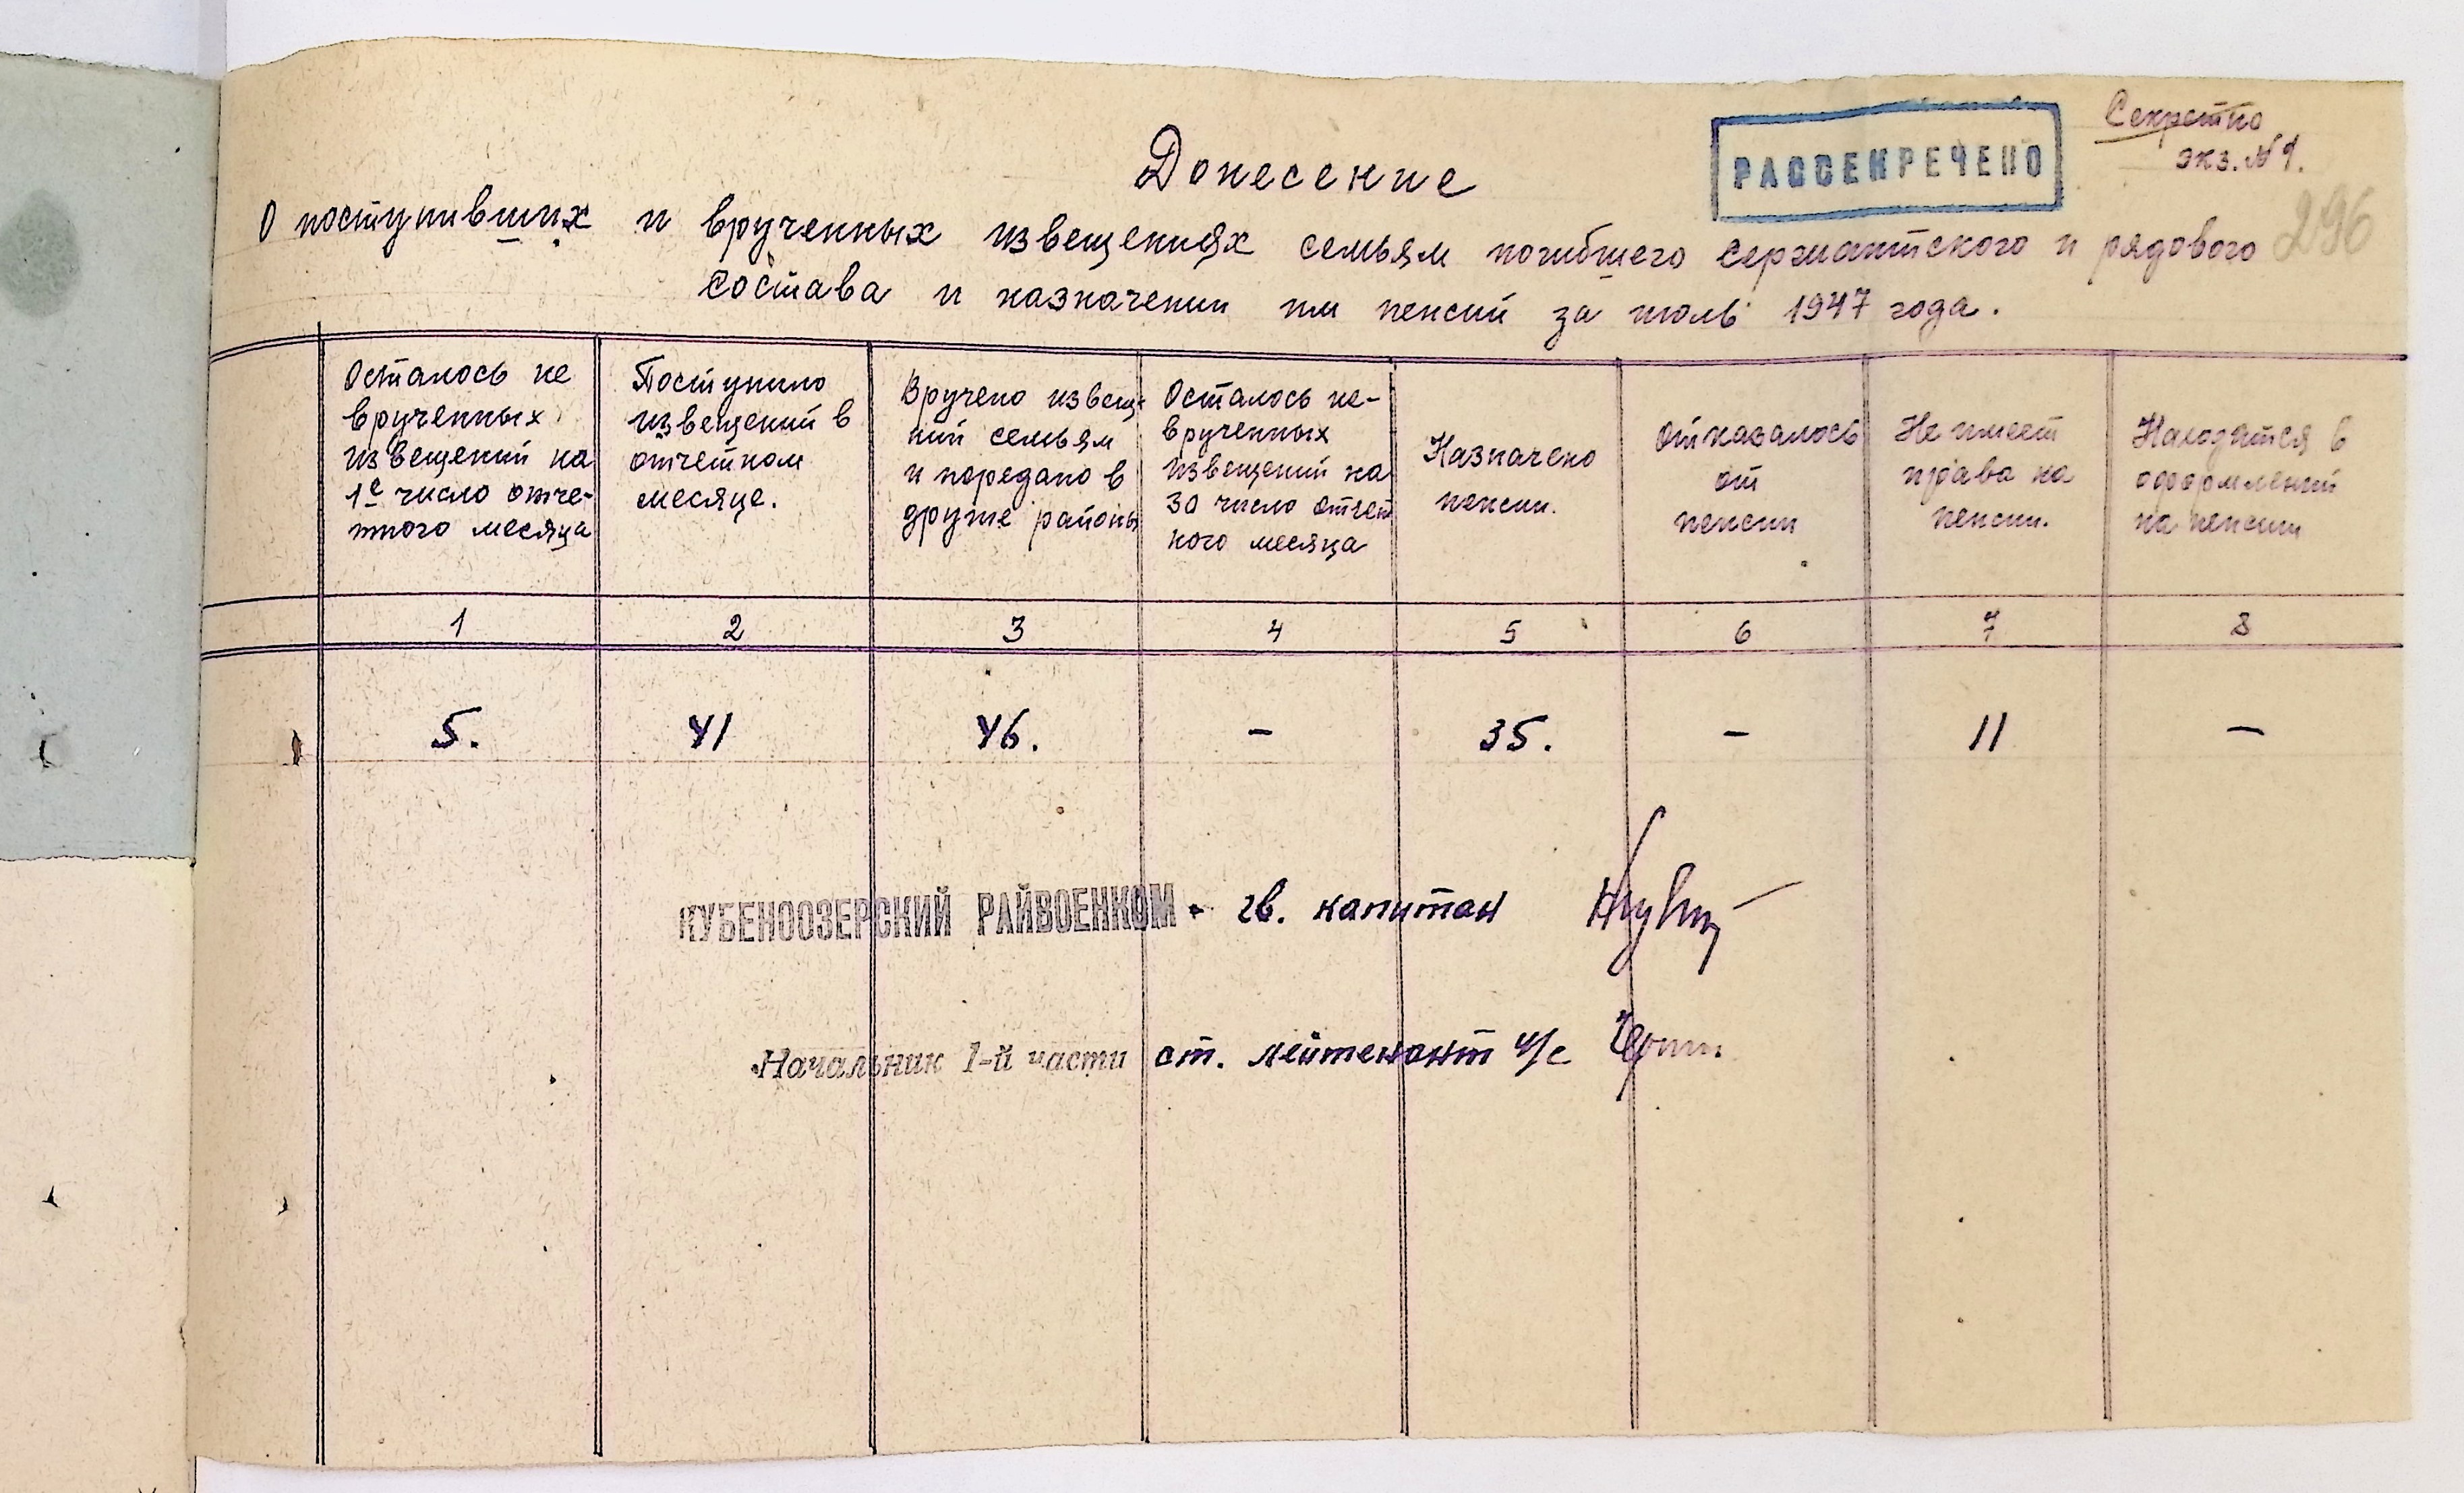 Секретно
экз. №1.
РАССЕКРЕЧЕНО
296
Донесение
О поступивших и врученных извещениях семьям погибшего сержантского и рядового
состава и назначении им пенсий за июль 1947 года.
Осталось не
врученных
извещений на
1е число отче-
тного месяца
Поступило
извещений в
отчетном
месяце.
Вручено извеще-
ний семьям
и передано в
другие районы
Осталось не-
врученных
извещений на
30 число отчет
ного месяца
Назначено
пенсии.
Отказалось
от
пенсии
Не имеет
права на
пенсии.
Находятся в
оформлении
на пенсии
1 2 3 4 5 6 7 8
5. 41 46. – 35. – 11 –
КУБЕНООЗЕРСКИЙ РАЙВОЕНКОМ - гв. капитан
Начальник 1-й части ст. лейтенант и/с